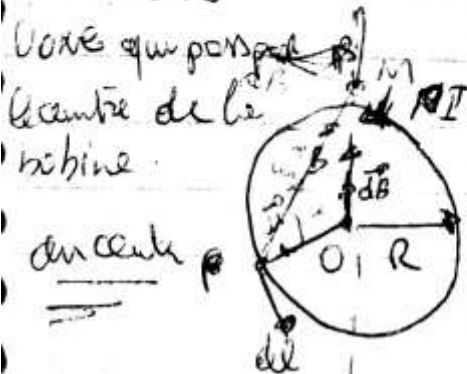 l'axe qui passe par
le centre de la
bobine.
M
I
B
dB
au centre
P
O
R
dl